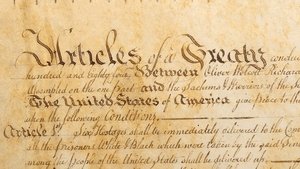 Articles of a Treaty conclu
hundred and Eighty four, Between Oliver Wolcott Richar
Assembled on the one Part and the Sachems & Warriors of the S
The United States of America give Peace to
upon the following Conditions.
Article 1st Six Hostages shall be immediately delivered to the Com
all the Prisoners White & Black which were taken by the said Sene
among the People of the United States shall be delivered up.